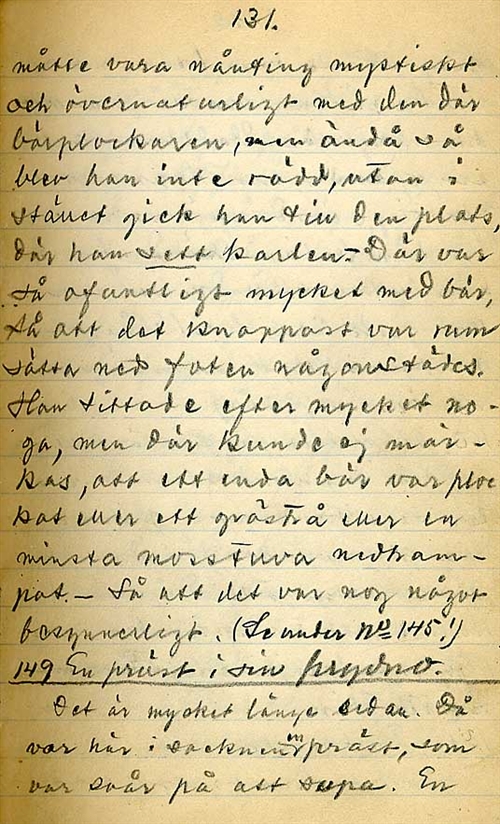 131.
måtte vara nånting myptiskt
och övernaturligt med den där
bärplockaren, men ändå så
blev han inte rädd, utan i
stället gick han till den plats,
där han sett karlen.- Där var
så ofantligt mycket med bär,
så att det knappast var rum
sätta ned foten någonstädes.
Han tittade efter mycket no-
ga, men där kunde ej mär-
kas, att ett enda bär var ploc
kat eller ett grässtrå eller en
minsta mosstuva nedtram-
pat.- Så att det var nog något
besynnerligt. (Se under No 145!)
149 En präst i sin
Det är mycket länge sedan. Då
var här i socknen en präst, som
var svår på att supa. En